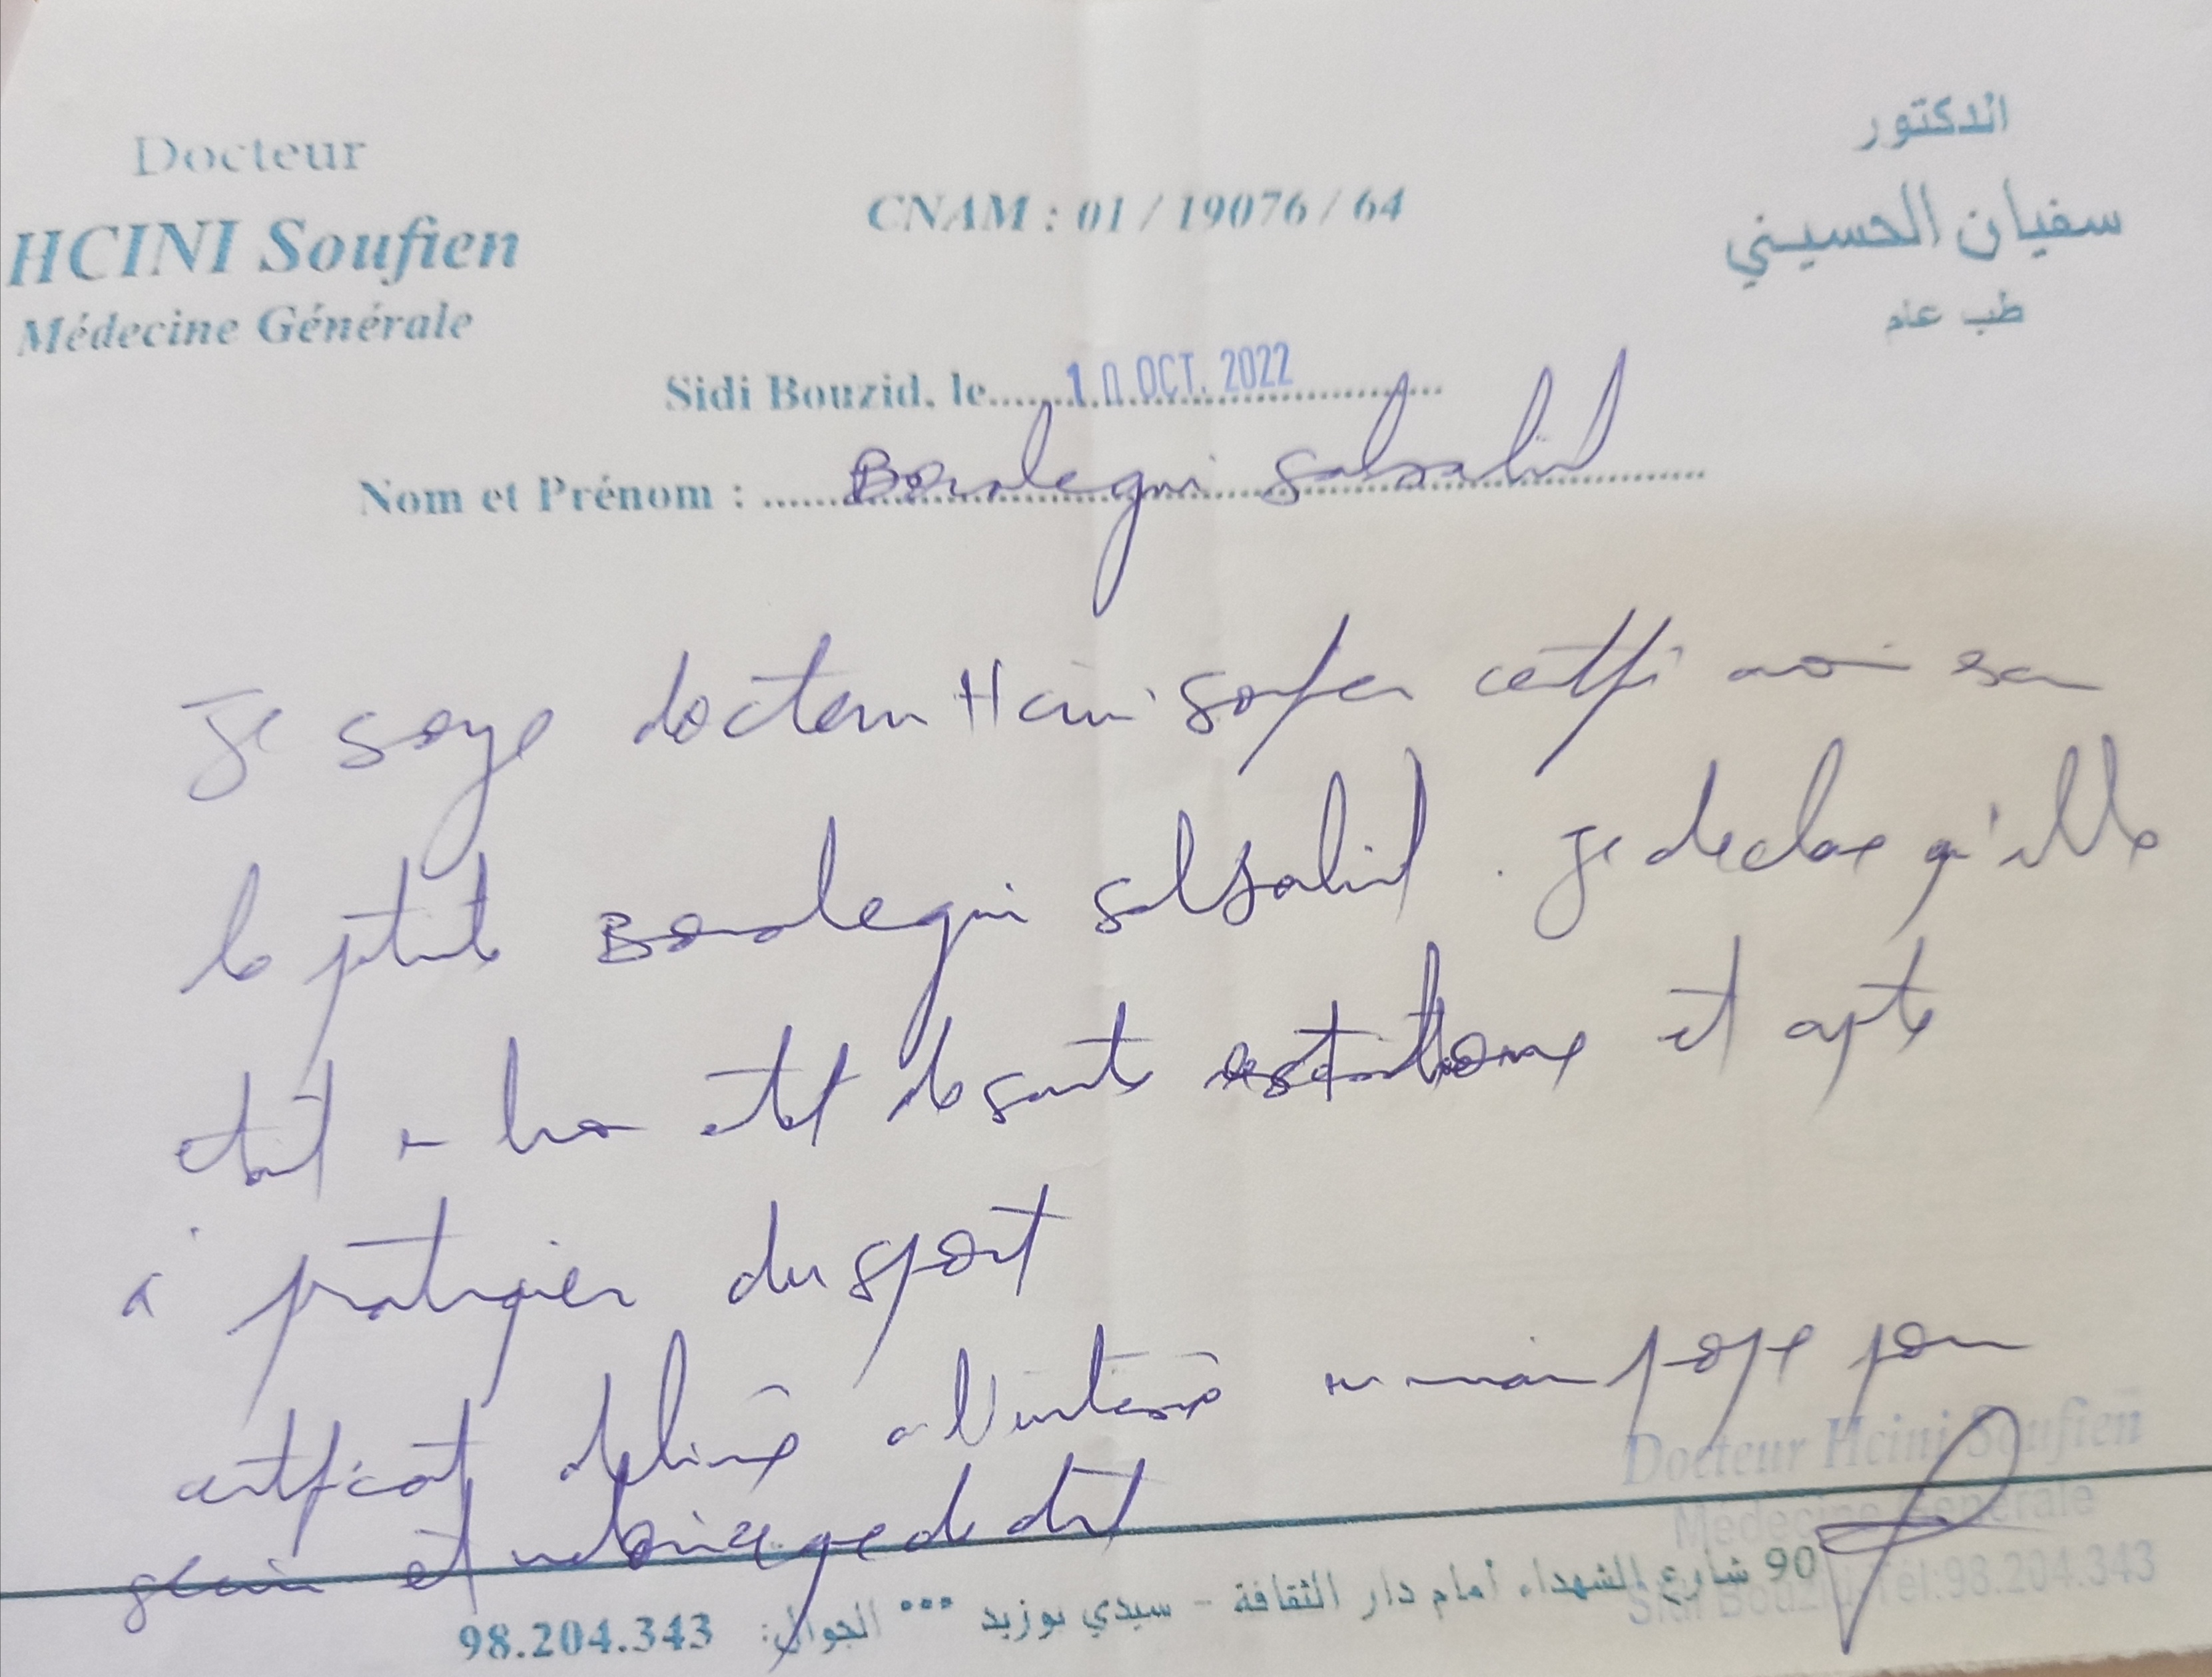 Docteur
HCINI Soufien
Médecine Générale
CNAM : 01 / 19076 / 64
الدكتور
سفيان الحسيني
طب عام
Sidi Bouzid, le 10 OCT. 2022
Nom et Prénom : Boualegui Salsabil
Je docteur Hcini Soufien certifi avoir
la Boualegui Salsabil . Je declare qu'elle
etait en bon etat de sante et apte
à pratiquer du sport
certificat delivré a l'interessé en main pour
et de droit
Docteur Hcini Soufien
Médecine Générale
Sidi Bouzid Tél:98.204.343
90 شارع الشهداء أمام دار الثقافة - سيدي بوزيد *** الجوال: 98.204.343